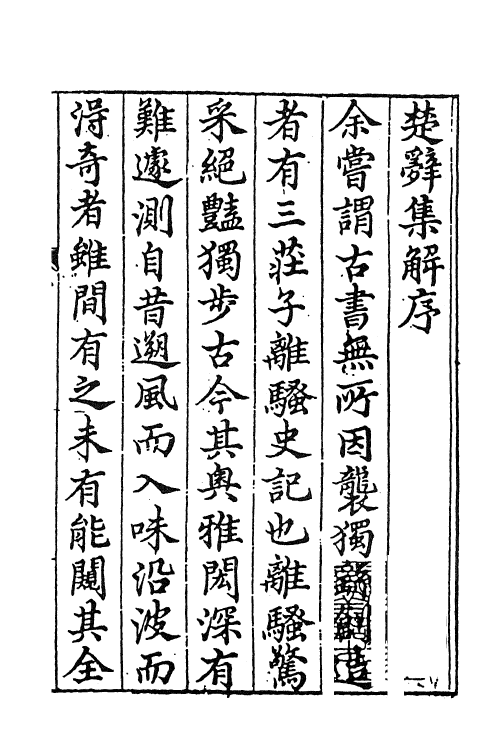 楚辭集解序
余嘗謂古書無所因襲獨造
者有三莊子離騷史記也離騷驚
采絕豔獨步古今其奧雅閎深有
難遽測自昔遡風而入味沿波而
淂奇者雖間有之未有能闚其全